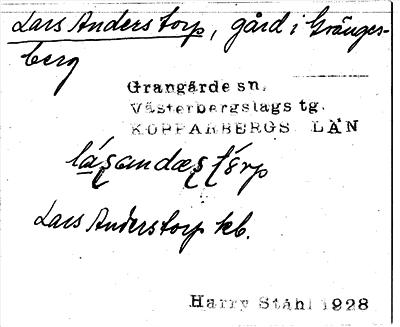 Lars Anders torp, gård i Gränges-
berg
Grangärde sn.
Västerbergslags tg.
KOPPARBERGS LÄN
Lars Anderstorp kb.
Harry Ståhl 1928